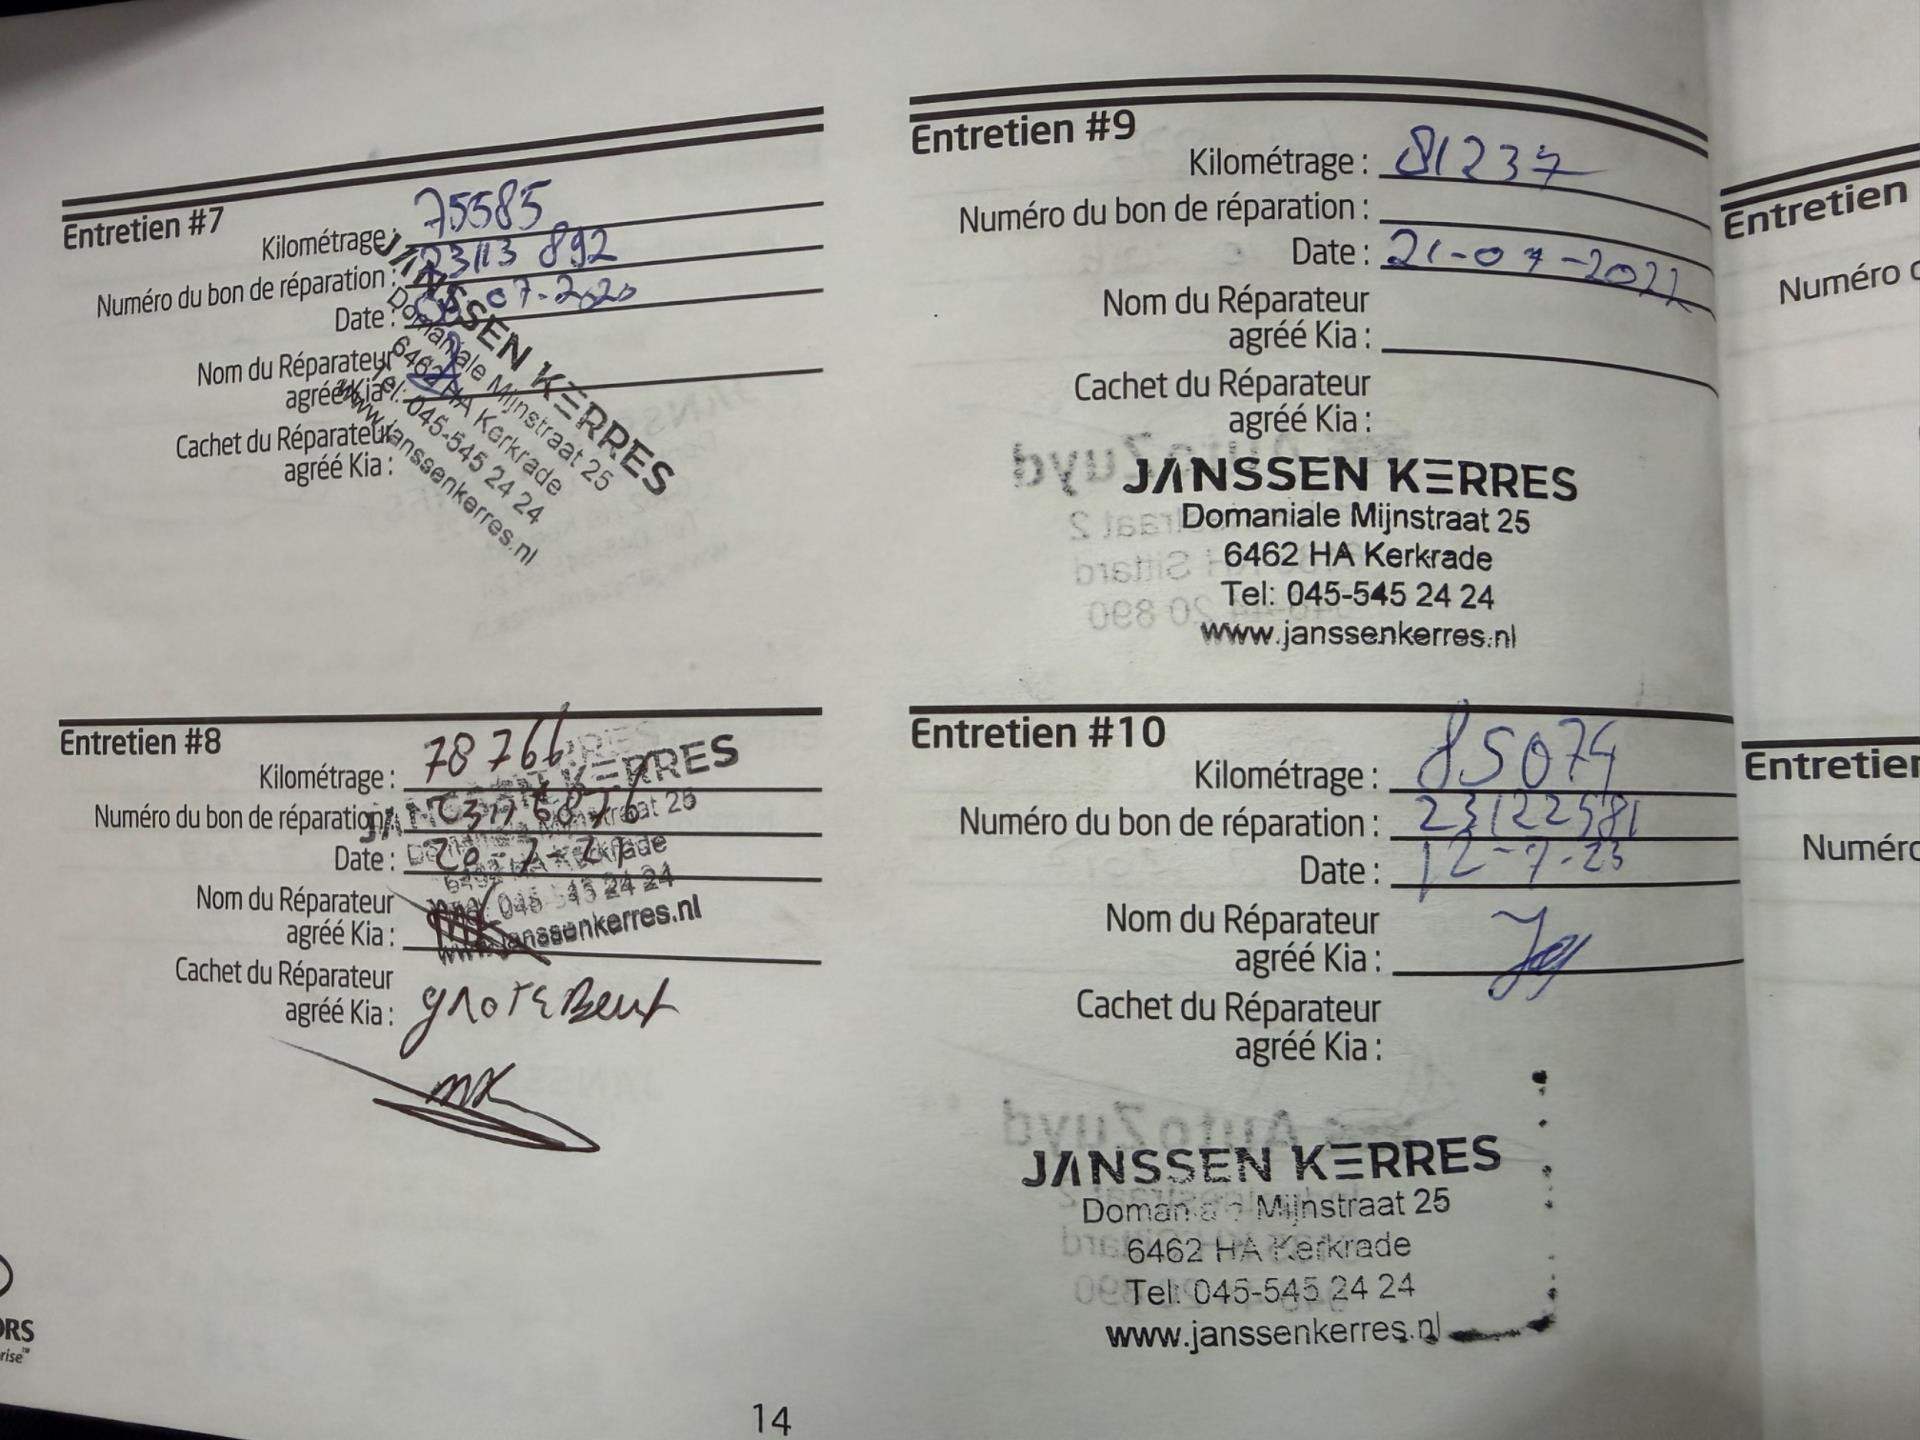 Entretien #7
Kilométrage : 75585
Numéro du bon de réparation : 23113 892
Date : 07-2020
Nom du Réparateur
agréé Kia :
Cachet du Réparateur
agréé Kia :
JANSSEN KERRES
Domaniale Mijnstraat 25
6462 HA Kerkrade
Tel: 045-545 24 24
www.janssenkerres.nl
Entretien #8
Kilométrage : 78766
Numéro du bon de réparation
Date : 20-7-21
Nom du Réparateur
agréé Kia :
Cachet du Réparateur
agréé Kia : grote Beurt
JANSSEN KERRES
Domaniale Mijnstraat 25
6462 HA Kerkrade
Tel: 045-545 24 24
www.janssenkerres.nl
Entretien #9
Kilométrage : 81237
Numéro du bon de réparation :
Date : 21-07-2022
Nom du Réparateur
agréé Kia :
Cachet du Réparateur
agréé Kia :
JANSSEN KERRES
Domaniale Mijnstraat 25
6462 HA Kerkrade
Tel: 045-545 24 24
www.janssenkerres.nl
Entretien #10
Kilométrage : 85074
Numéro du bon de réparation : 23122581
Date : 12-7-23
Nom du Réparateur
agréé Kia :
Cachet du Réparateur
agréé Kia :
JANSSEN KERRES
Domaniale Mijnstraat 25
6462 HA Kerkrade
Tel: 045-545 24 24
www.janssenkerres.nl
14
Entretien
Numéro
Entretien
Numéro